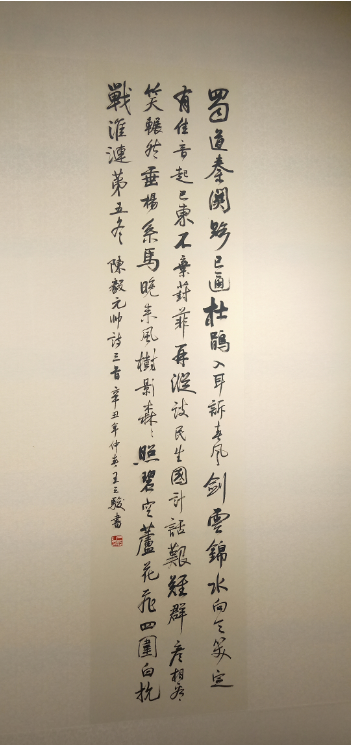 蜀道秦関跡已通杜鵑入耳訴春風剑雲錦水向人笑定
有佳音起巴東不棄葑菲再縱談民生國計話艱難群彦相看
笑輾然垂楊系馬晚来風樹影森々照碧空蘆花飛四圍白抗
戰淮漣第五冬 陳毅元帥詩三首辛丑年仲春王三書